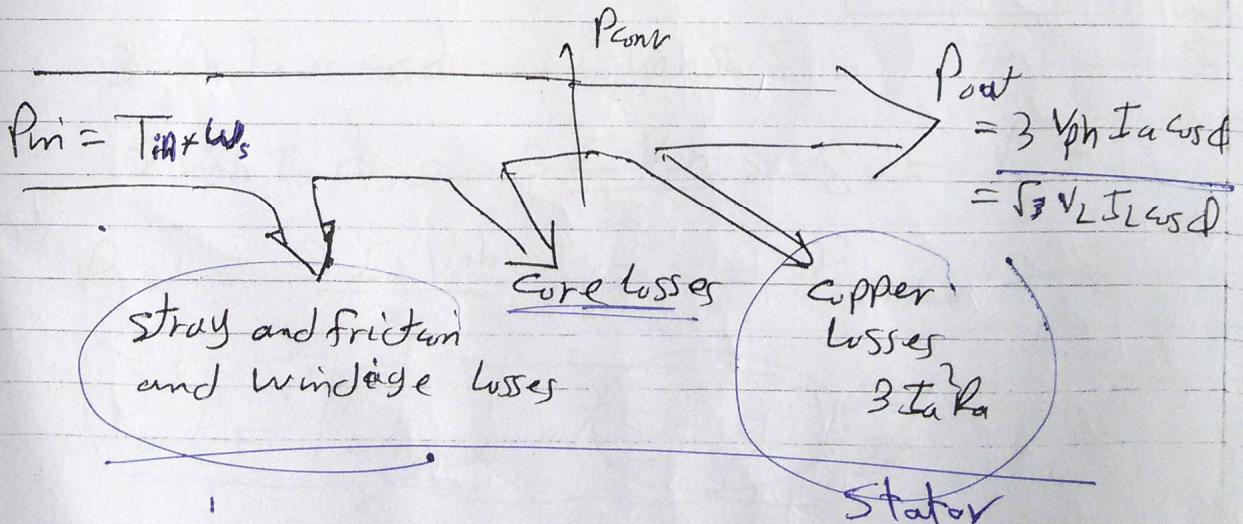 Pconv
Pin = Tin * ωs
Pout
= 3 Vph Ia cos ϕ
= √3 VL IL cos ϕ
core losses
stray and friction
and windage losses
copper
losses
3 Ia² Ra
stator